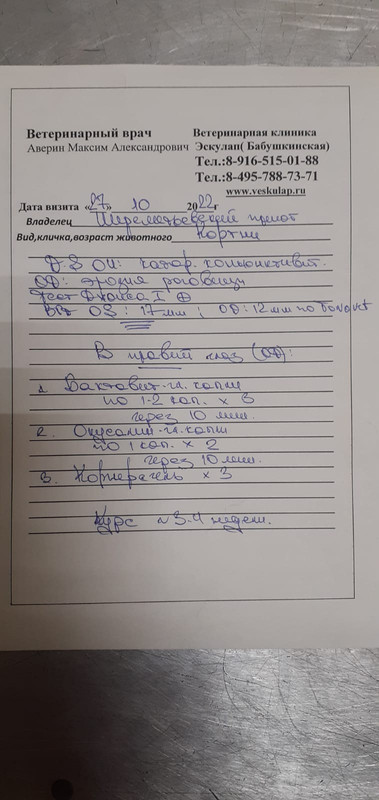 Ветеринарный врач
Аверин Максим Александрович
Ветеринарная клиника
Эскулап( Бабушкинская)
Тел.:8-916-515-01-88
Тел.:8-495-788-73-71
www.veskulap.ru
Дата визита «27» 10 2022г
Владелец Шереметьевский приют
Вид,кличка,возраст животного Кортни
D.S OU: катар. конъюнктивит.
OD: эрозия роговицы
Тест Джонса I ⊕
OS: 17 мм ; OD: 12 мм по Tonovet
В правый глаз (OD):
1. Вактовит-гл. капли
по 1-2 кап. x 3
через 10 мин.
2. Окусалин-гл. капли
по 1 кап. x 2
через 10 мин.
3. Корнерегель x 3
Курс ~3-4 недели.